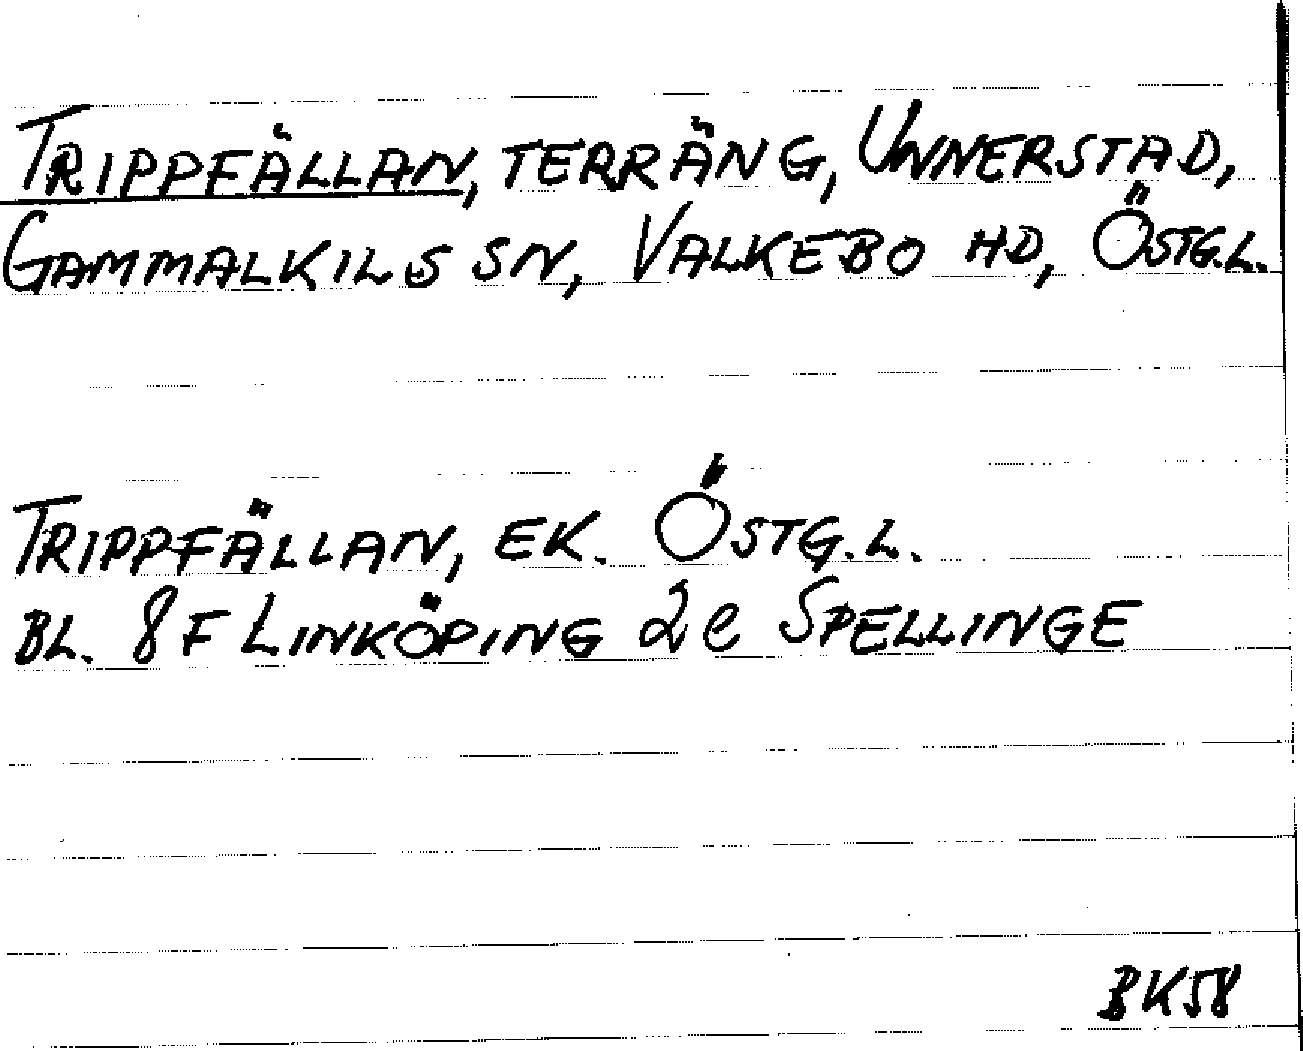 TRIPPFÄLLAN, TERRÄNG, UNNERSTAD,
GAMMALKILS SN, VALKEBO HD, ÖSTG.L.
TRIPPFÄLLAN, EK. ÖSTG.L.
BL. 8F LINKÖPING 2e SPELLINGE
BK58